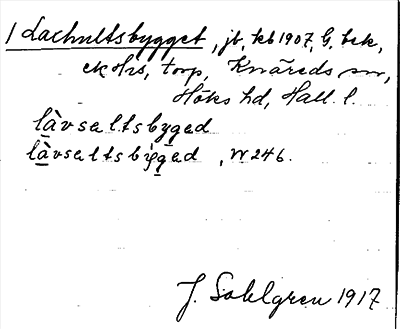 1 Lachultsbygget, jb, kb 1907, G. bek,
ek Hs, torp, Knäreds sn,
Höks hd, Hall. l.
làvsaltsbyged
làvsaltsbyged, W 246.
J. Sahlgren 1917